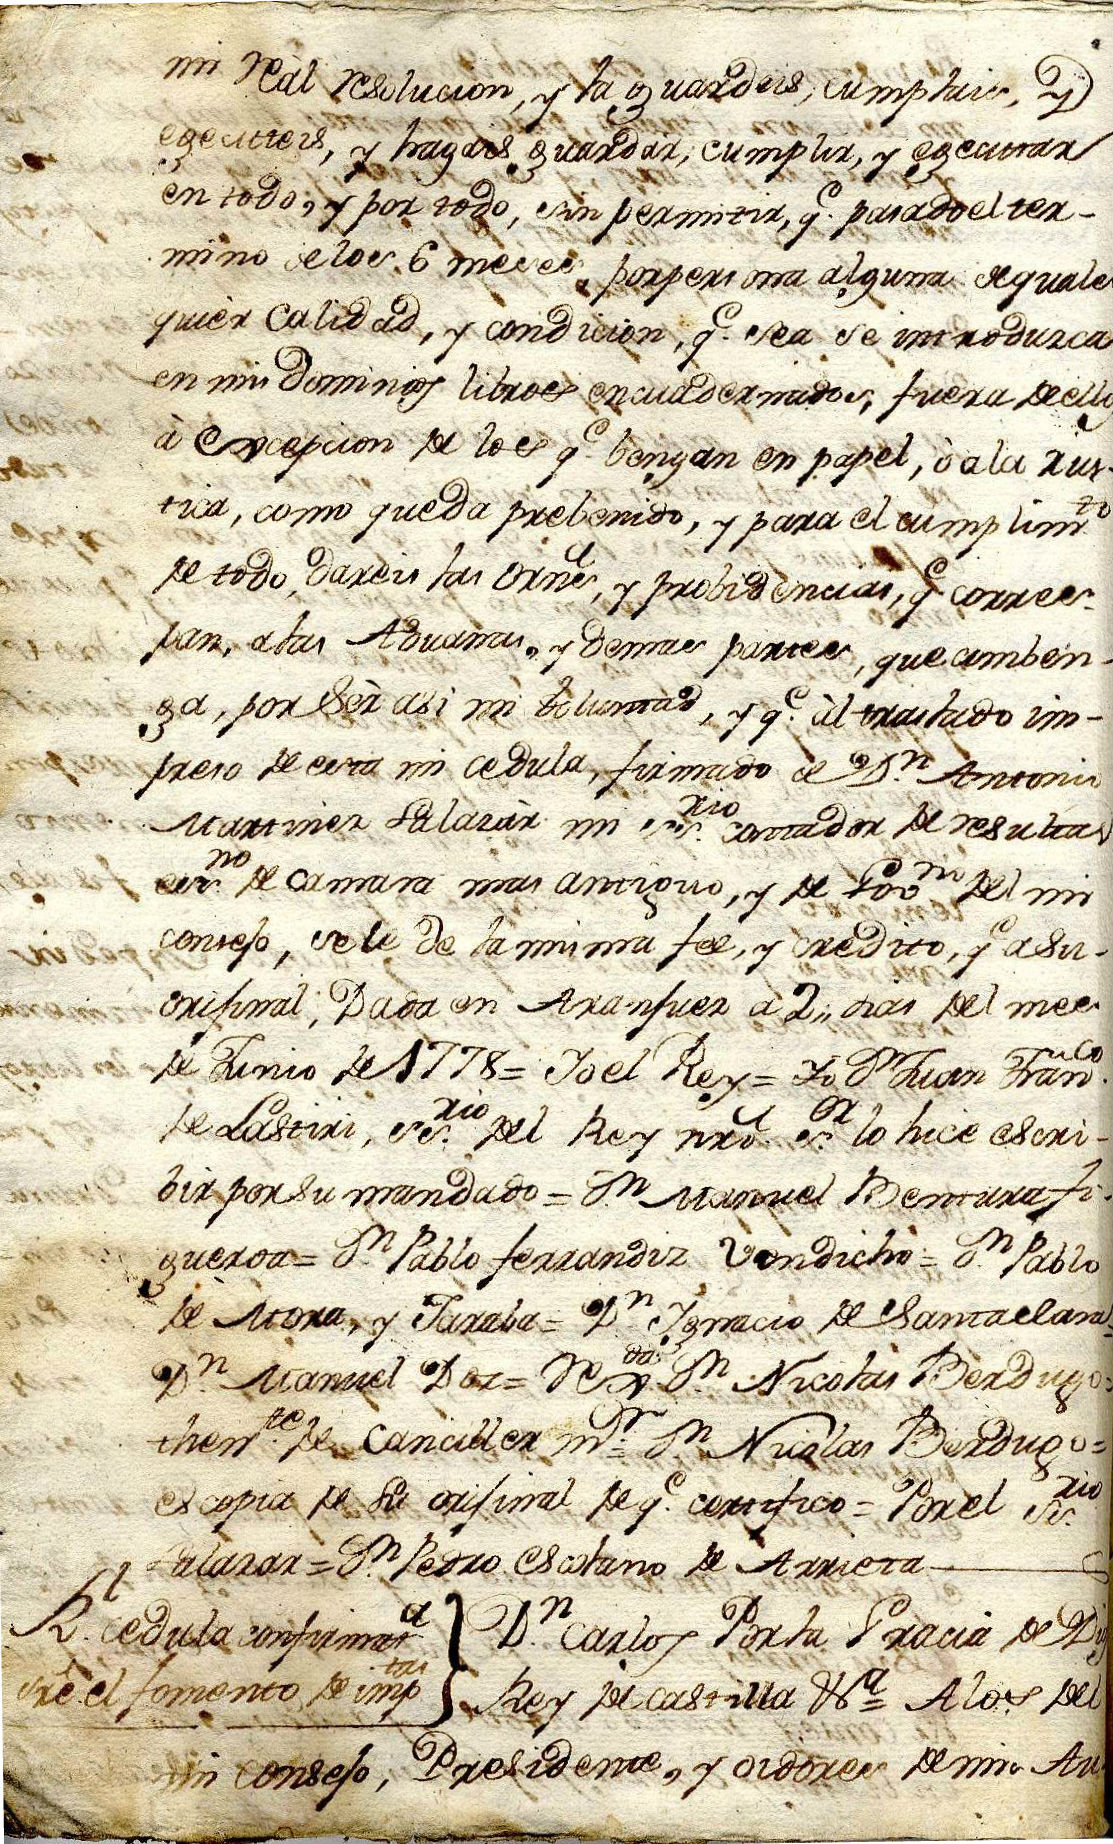 mi Real resolucion, y la guardeis, cumplais, y
egecuteis, y hagais guardar, cumplir, y egecutar
en todo, y por todo, sin permitir, q.e pasado el ter-
mino de los 6 meses, por persona alguna de quale
quier Calidad, y condicion, q.e sea se introduzca
en mis Dominios libros encuadernados, fuera de ello
à Excepcion de los q.e bengan en papel, ò a la rus-
tica, como queda prebenido, y para el cumplim.to
de todo, dareis las Orn.s, y probidencias, q.e corres-
pan, a las Aduanas, y demas partes, que comben-
ga, por Sèr asi mi boluntad, y q.e àl traslado im-
preso de esta mi cedula, firmado de D.n Antonio
Martinez Salazàr mi ss.rio contador de resultas
esc.no de camara mas antiguo, y de Gov.no del mi
consejo, se le de la misma fee, y credito, q.e a su
orijinal, Dada en Aranjuez a 2,, dias del mes
de Junio de 1778 = Yo el Rey = Yo D.n Juan Fran.co
de Lastiri, ss.rio del Rey nro s.or lo hice escri-
bir por su mandado = D.n Manuel Bentura fi-
gueroa = D.n Pablo ferrandiz Vendicho = D.n Pablo
de Mora, y Jaraba = D.n Ygnacio de Santa clara =
D.n Manuel Doz = Rex.da D.n Nicolas Berdugo =
then.te de Canciller m.r D.n Nicolas Berdugo =
es copia de su orijinal de q.e certifico = Por el ss.rio
Salazar = D.n Pedro Escolano de Arrieta
R.l cedula confirmat.a
sre. el fomento de imp.tas
D.n Carlos Por la Gracia de Di
Rey de Castilla &.a A los del
mi consejo, Presidente, y oidores de mis Au-